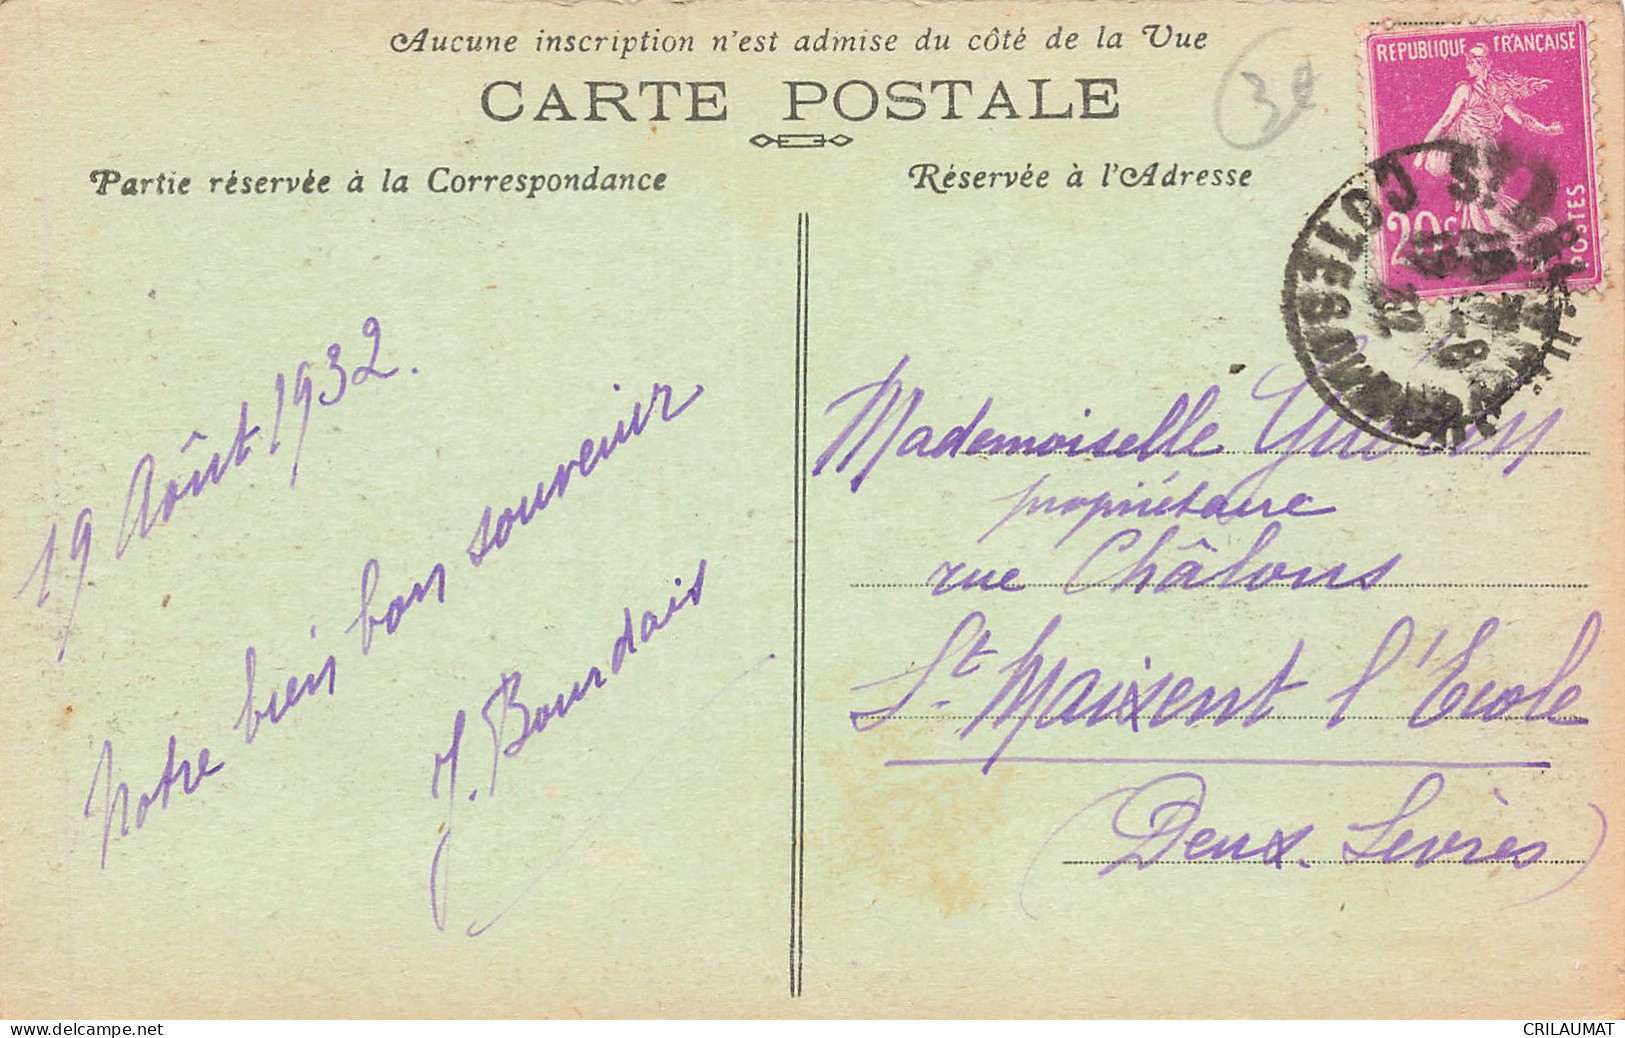 Aucune inscription n'est admise du côté de la Vue
CARTE POSTALE
3e
Partie réservée à la Correspondance
Réservée à l'Adresse
REPUBLIQUE FRANÇAISE
20c
POSTES
COTES DU
32
19 Août 1932.
Notre bien bon souvenir
J. Bourdais
Mademoiselle
propriétaire
rue Châlons
St. Maixent l'Ecole
(Deux. Sèvres)
www.delcampe.net
CRILAUMAT